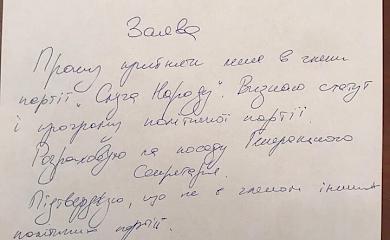 Заява
Прошу прийняти мене в члени
партії "Слуга Народу". Визнаю статут
і програму політичної партії.
Розраховую на посаду Генерального
Секретаря.
Підтверджую, що не є членом інших
політичних партій.